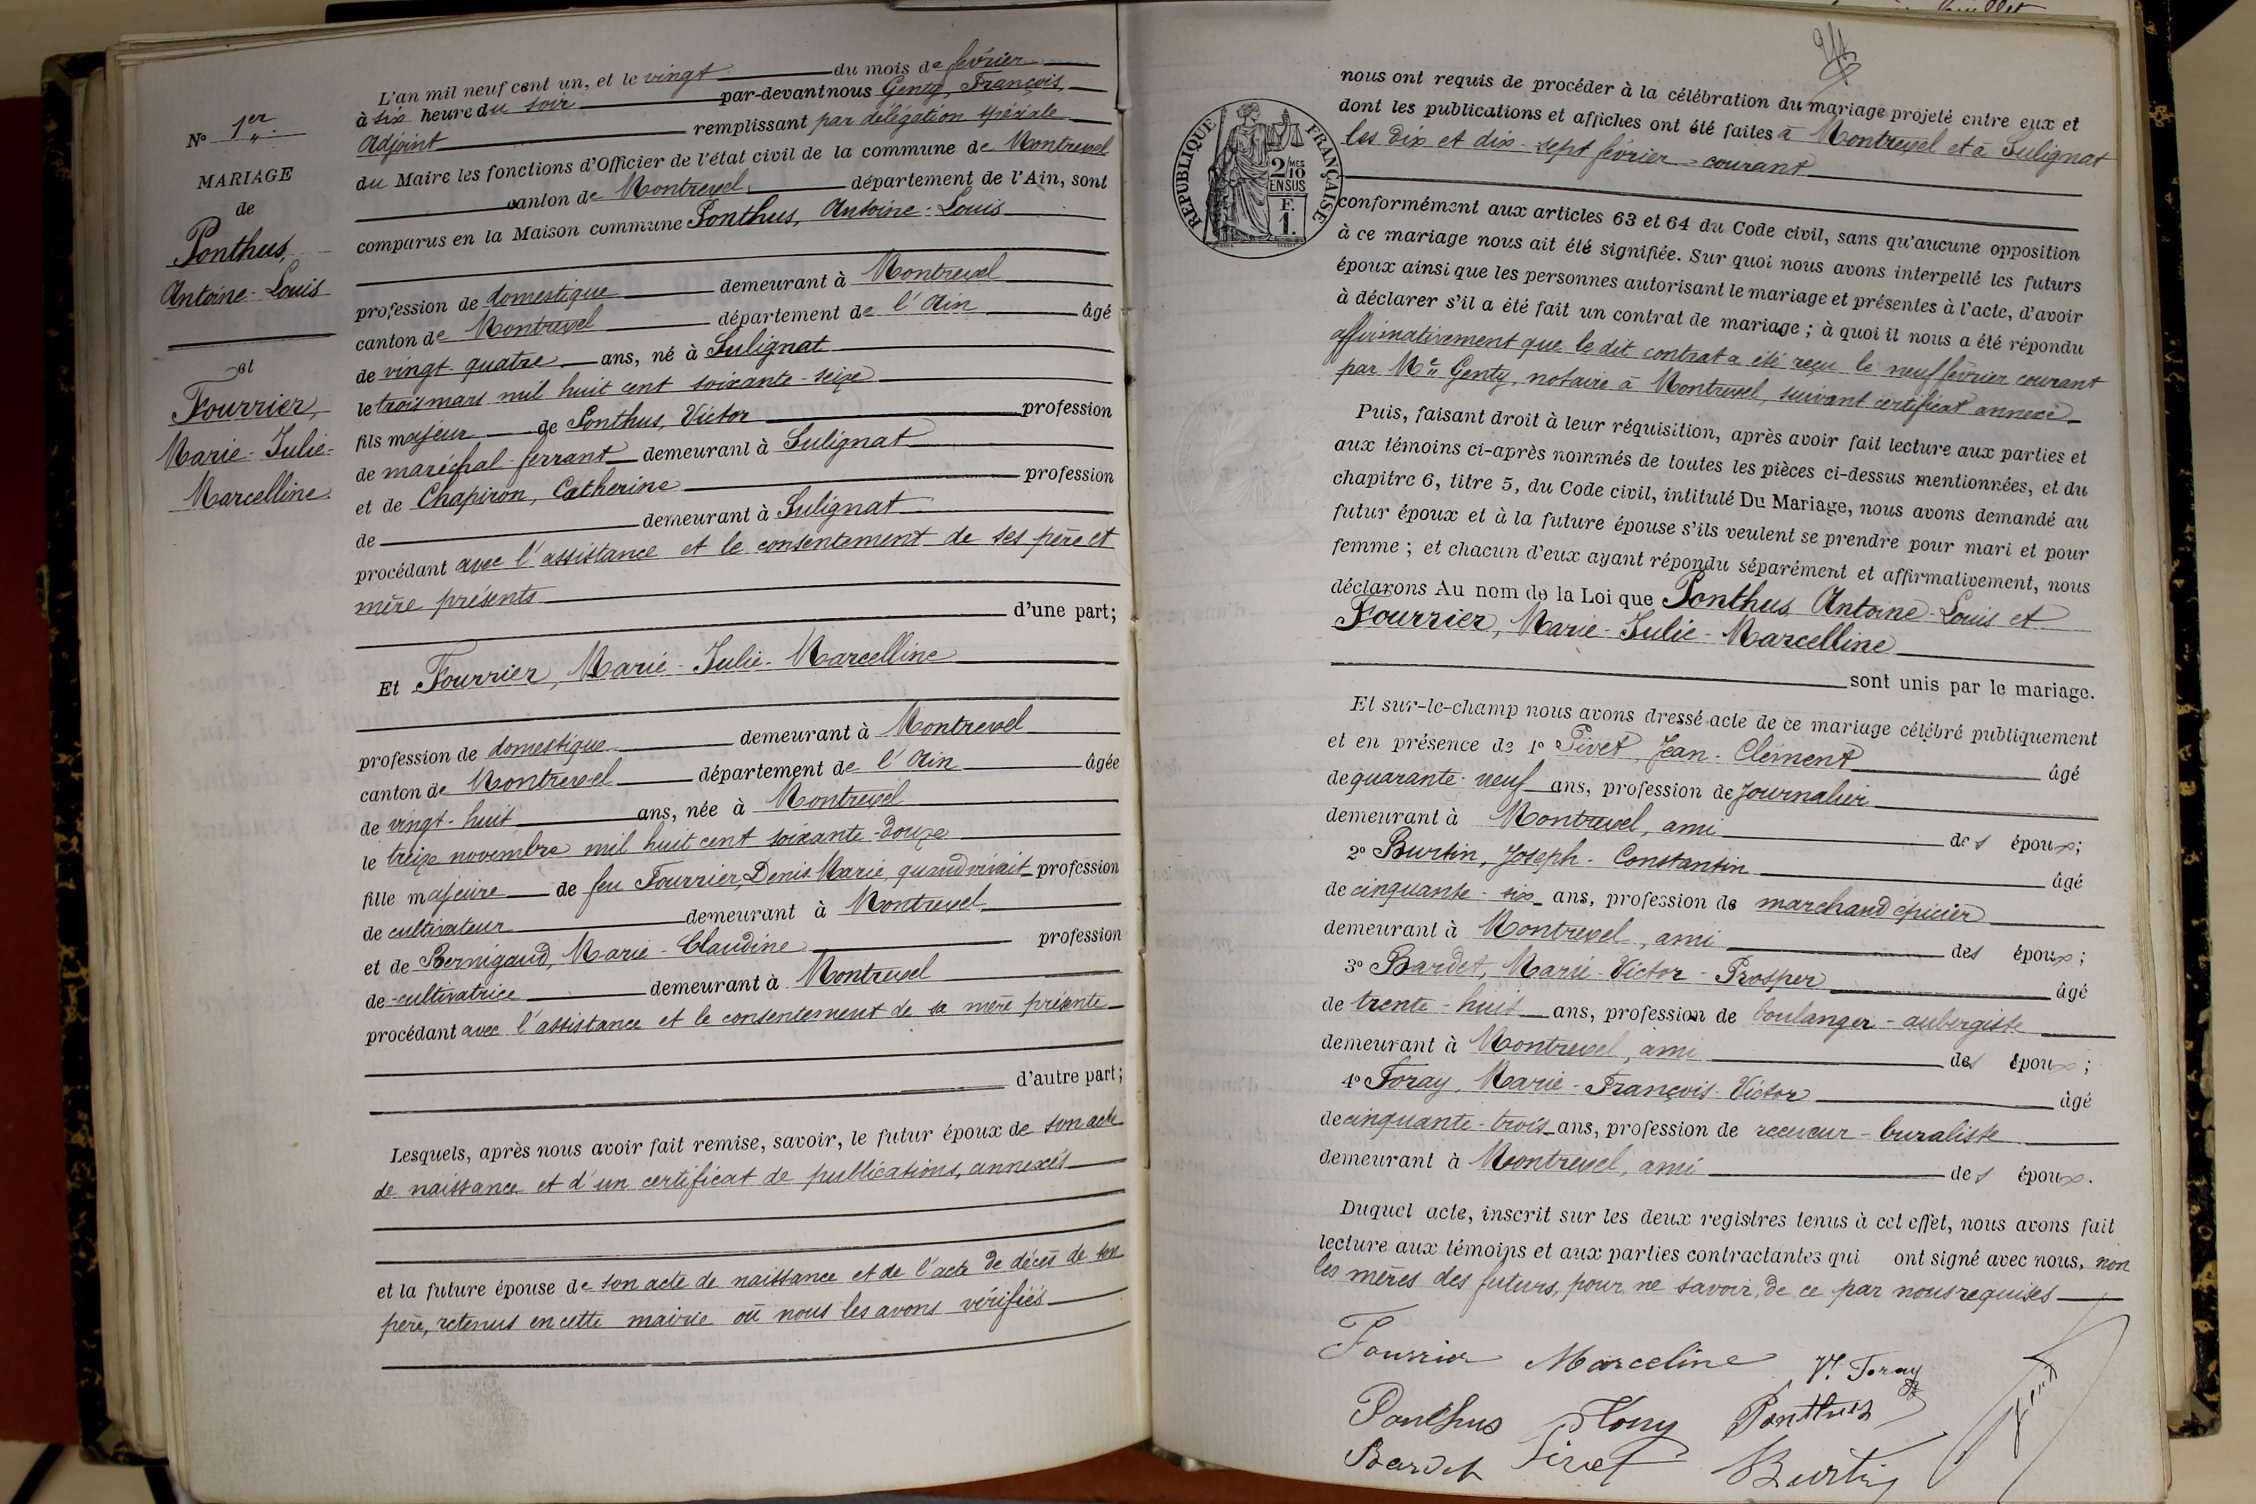 L'an mil neuf cent un, et le vingt du mois de février
à six heure du soir par-devant nous Genty, François,
Adjoint remplissant par délégation spéciale
du Maire les fonctions d'Officier de l'état civil de la commune de Montrevel
canton de Montrevel, département de l'Ain, sont
comparus en la Maison commune Ponthus, Antoine-Louis
profession de domestique demeurant à Montrevel
canton de Montrevel département de l'Ain âgé
de vingt-quatre ans, né à Sulignat
le trois mars mil huit cent soixante-seize
fils majeur de Ponthus, Victor profession
de maréchal-ferrant demeurant à Sulignat
et de Chapiron, Catherine profession
de demeurant à Sulignat
procédant avec l'assistance et le consentement de ses père et
mère présents
d'une part;
Et Fourrier, Marie-Julie-Marcelline
profession de domestique demeurant à Montrevel
canton de Montrevel département de l'Ain âgée
de vingt-huit ans, née à Montrevel
le treize novembre mil huit cent soixante-douze
fille majeure de feu Fourrier, Denis Marie, quand vivait profession
de cultivateur demeurant à Montrevel
et de Bernigaud, Marie-Claudine profession
de cultivatrice demeurant à Montrevel
procédant avec l'assistance et le consentement de sa mère présente
d'autre part;
Lesquels, après nous avoir fait remise, savoir, le futur époux de son acte
de naissance et d'un certificat de publications, annexés
et la future épouse de son acte de naissance et de l'acte de décès de son
père, retenus en cette mairie où nous les avons vérifiés
N° 1er
MARIAGE
de
Ponthus,
Antoine-Louis
et
Fourrier,
Marie-Julie-
Marcelline.
nous ont requis de procéder à la célébration du mariage projeté entre eux et
dont les publications et affiches ont été faites à Montrevel et à Sulignat
les dix et dix-sept février courant
RÉPUBLIQUE FRANÇAISE
2 MES
10
EN SUS
F.
1.
conformément aux articles 63 et 64 du Code civil, sans qu'aucune opposition
à ce mariage nous ait été signifiée. Sur quoi nous avons interpellé les futurs
époux ainsi que les personnes autorisant le mariage et présentes à l'acte, d'avoir
à déclarer s'il a été fait un contrat de mariage; à quoi il nous a été répondu
affirmativement que le dit contrat a été reçu le neuf février courant
par Me Genty, notaire à Montrevel, suivant certificat annexé
Puis, faisant droit à leur réquisition, après avoir fait lecture aux parties et
aux témoins ci-après nommés de toutes les pièces ci-dessus mentionnées, et du
chapitre 6, titre 5, du Code civil, intitulé Du Mariage, nous avons demandé au
futur époux et à la future épouse s'ils veulent se prendre pour mari et pour
femme; et chacun d'eux ayant répondu séparément et affirmativement, nous
déclarons Au nom de la Loi que Ponthus Antoine-Louis et
Fourrier, Marie-Julie-Marcelline
sont unis par le mariage.
Et sur-le-champ nous avons dressé acte de ce mariage célébré publiquement
et en présence de 1° Pivet, Jean-Clément âgé
de quarante-neuf ans, profession de Journalier
demeurant à Montrevel, ami des époux;
2° Burtin, Joseph-Constantin âgé
de cinquante-six ans, profession de marchand épicier
demeurant à Montrevel, ami des époux;
3° Bardet, Marie-Victor-Prosper âgé
de trente-huit ans, profession de boulanger-aubergiste
demeurant à Montrevel, ami des époux;
4° Foray, Marie-François-Victor âgé
de cinquante-trois ans, profession de receveur-buraliste
demeurant à Montrevel, ami des époux.
Duquel acte, inscrit sur les deux registres tenus à cet effet, nous avons fait
lecture aux témoins et aux parties contractantes qui ont signé avec nous, non
les mères des futurs, pour ne savoir, de ce par nous requises
Fourrier Marceline Vr Foray
Ponthus Ponthus
Bardet Pivet Burtin